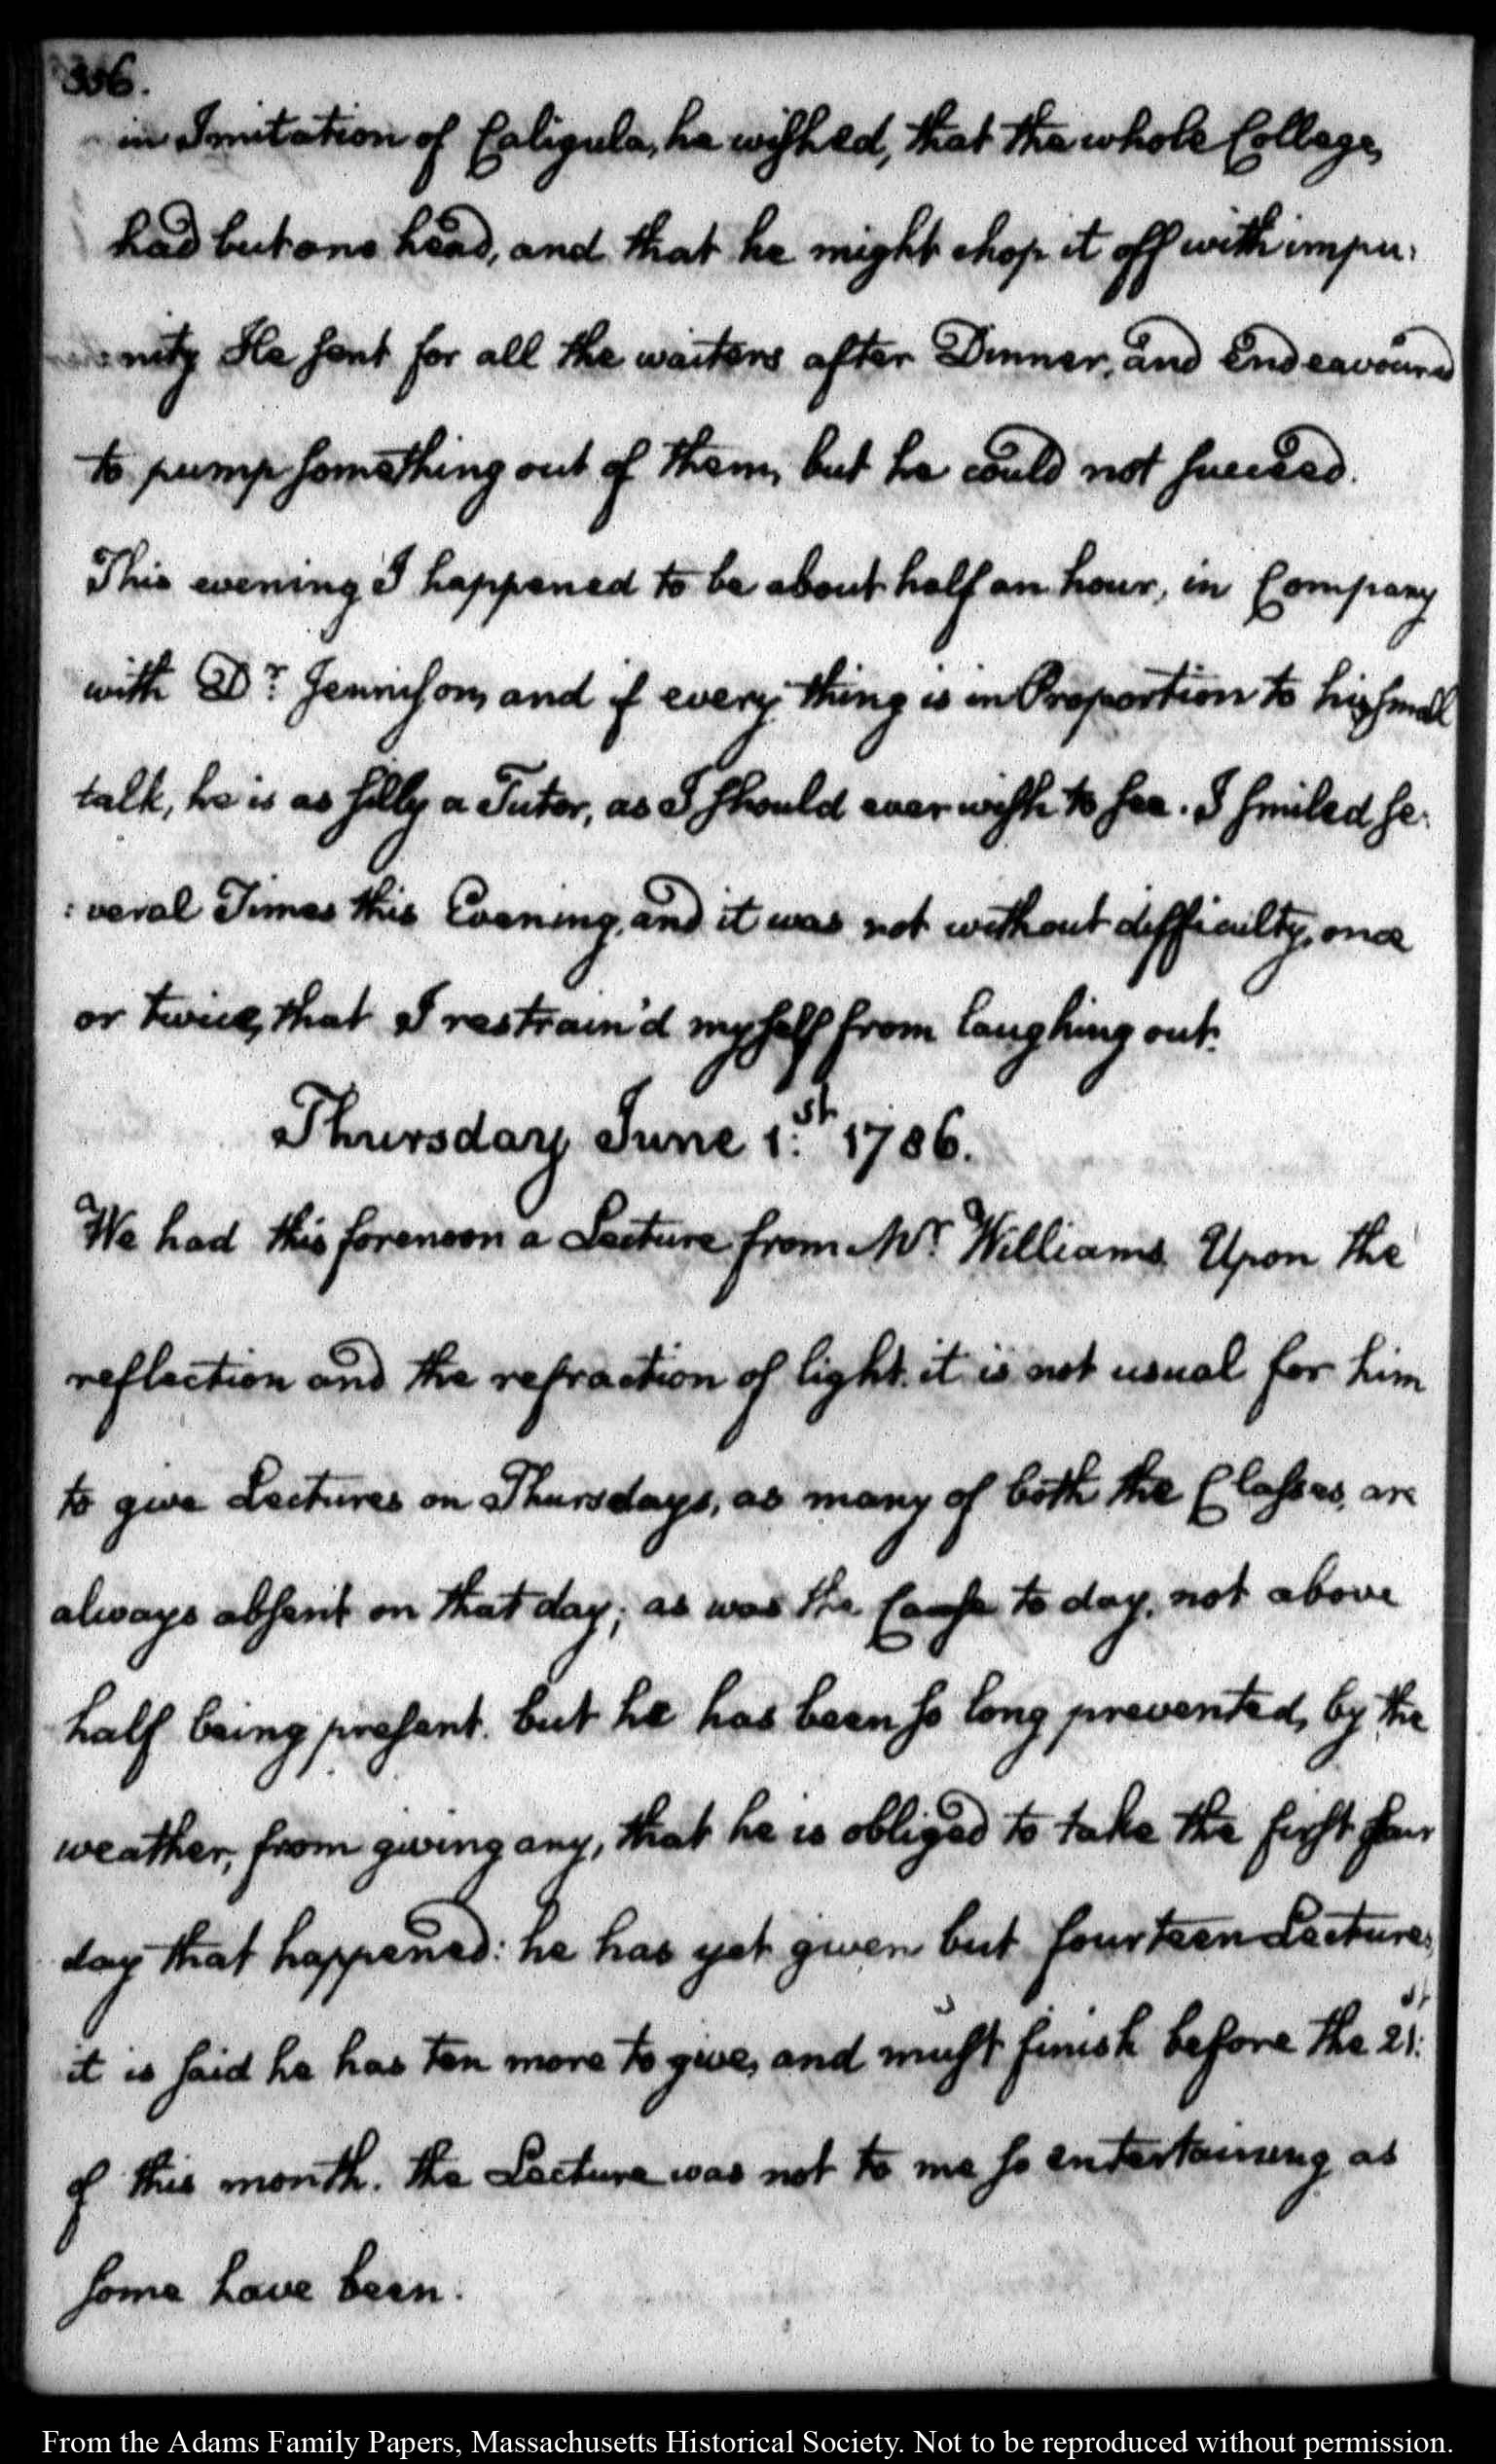 336.
in Imitation of Caligula, he wished, that the whole College,
had but one head, and that he might chop it off with impu:
:nity He sent for all the waiters after Dinner, and Endeavoured
to pump something out of them, but he could not succeed.
This evening I happened to be about half an hour, in Company
with Dr. Jennison, and if every thing is in Proportion to his small
talk, he is as silly a Tutor, as I should ever wish to see. I smiled se:
:veral Times this Evening, and it was not without difficulty, once
or twice, that I restrain'd myself from laughing out.
Thursday June 1st. 1786.
We had this forenoon a Lecture from Mr. Williams Upon the
reflection and the refraction of light. it is not usual for him
to give Lectures on Thursdays, as many of both the Classes, are
always absent on that day; as was the Case to day, not above
half being present. but he has been so long prevented, by the
weather, from giving any, that he is obliged to take the first fair
day that happened: he has yet given but fourteen Lectures,
it is said he has ten more to give, and must finish before the 21st.
of this month. the Lecture was not to me so entertaining as
some have been.
From the Adams Family Papers, Massachusetts Historical Society. Not to be reproduced without permission.